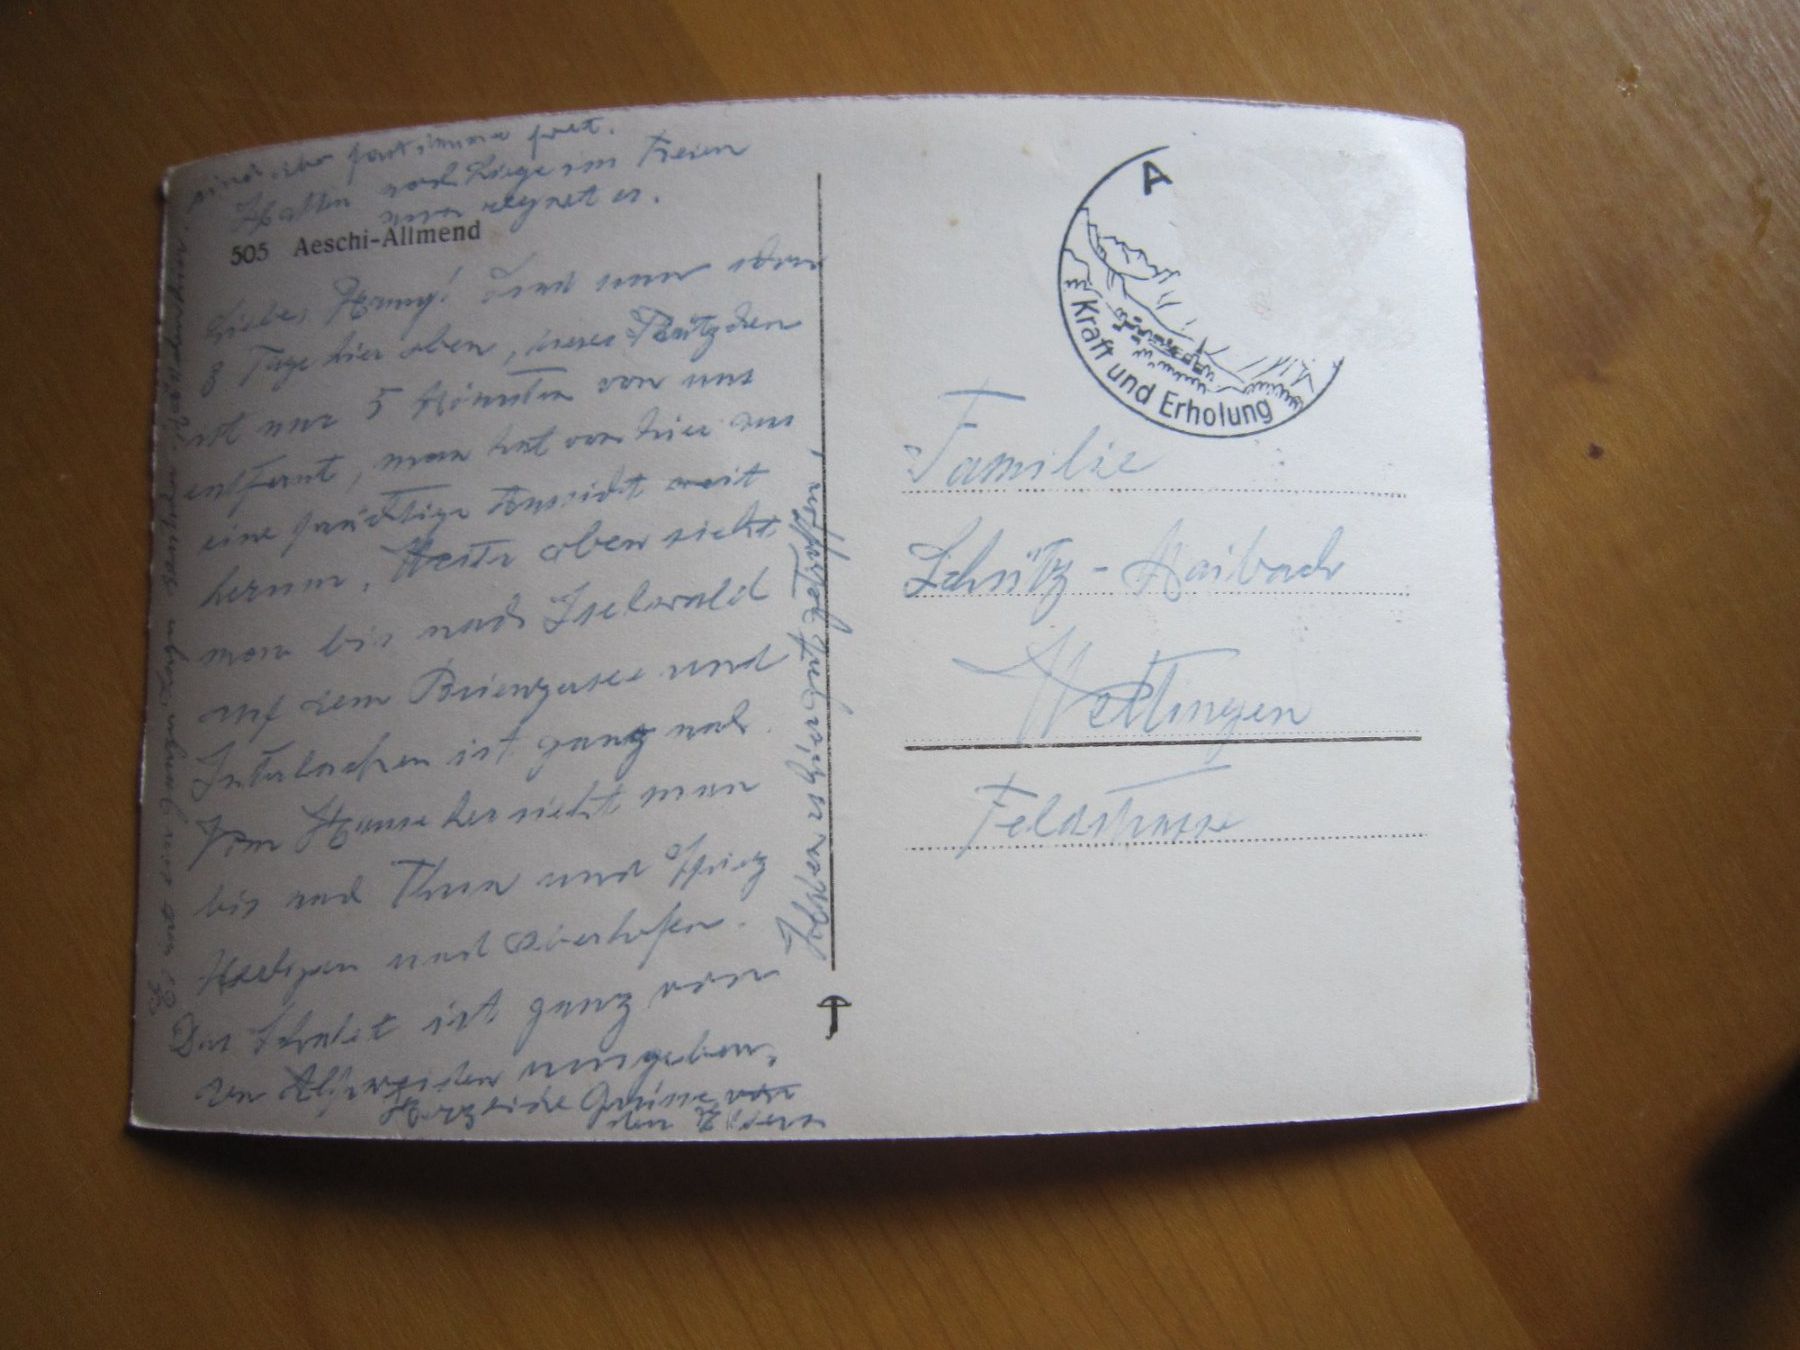 Hatten noch Liege im Freien
nun regnet es.
505 Aeschi-Allmend
Liebe Hanny! Sind nun schon
8 Tage hier oben, dieses Plätzchen
ist nur 5 Minuten von uns
entfernt, man hat von hier aus
eine prächtige Aussicht weit
herum. Weiter oben sieht
man bis nach Iseltwald
auf dem Brienzersee und
Interlacken ist ganz nah.
Vom Hause her sieht man
bis nach Thun und Spiez
und Oberhofen.
Das Chalet ist ganz von
den Alpweiden umgeben.
Herzliche Grüsse von
den
Haben es hier gut getroffen.
A
Kraft und Erholung
Familie
Schütz-Maibach
Wettingen
Feldstrasse